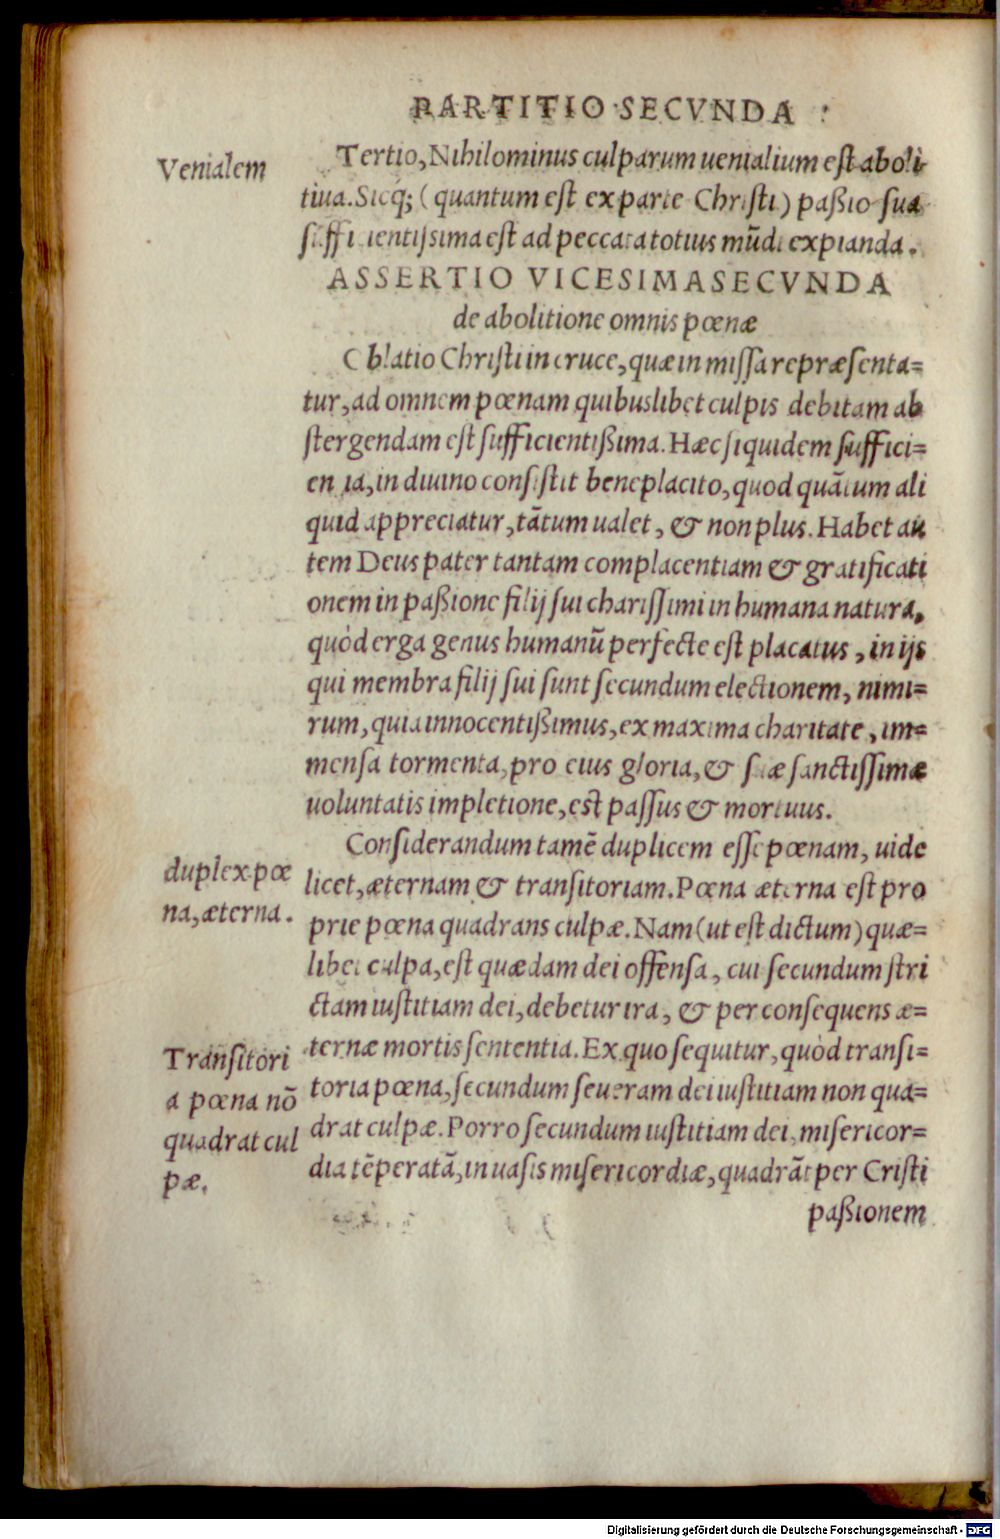 PARTITIO SECVNDA
Venialem
Tertio, Nihilominus culparum uenialium est aboli-
tiua. Sicq́; (quantum est ex parte Christi) paßio sua
sufficientissima est ad peccata totius mũdi expianda.
ASSERTIO VICESIMASECVNDA
de abolitione omnis pœnæ
Oblatio Christi in cruce, quæ in missa repræsenta=
tur, ad omnem pœnam quibuslibet culpis debitam ab
stergendam est sufficientißima. Hæc siquidem suffici=
entia, in diuino consistit beneplacito, quod quãtum ali
quid appreciatur, tãtum ualet, & non plus. Habet au
tem Deus pater tantam complacentiam & gratificati
onem in paßione filij sui charissimi in humana natura,
quòd erga genus humanũ perfecte est placatus, in ijs
qui membra filij sui sunt secundum electionem, nimi=
rum, quia innocentißimus, ex maxima charitate, im=
mensa tormenta, pro eius gloria, & suæ sanctissimæ
uoluntatis impletione, est passus & mortuus.
Considerandum tamẽ duplicem esse pœnam, uide
duplex pœ
licet, æternam & transitoriam. Pœna æterna est pro
na, æterna.
prie pœna quadrans culpæ. Nam (ut est dictum) quæ=
libet culpa, est quædam dei offensa, cui secundum stri
ctam iustitiam dei, debetur ira, & per consequens æ=
Transitori
ternæ mortis sententia. Ex quo sequitur, quòd transi=
a pœna nõ
toria pœna, secundum seueram dei iustitiam non qua=
quadrat cul
drat culpæ. Porro secundum iustitiam dei, misericor=
pæ.
dia tẽperatã, in uasis misericordiæ, quadrãt per Cristi
paßionem
Digitalisierung gefördert durch die Deutsche Forschungsgemeinschaft - DFG